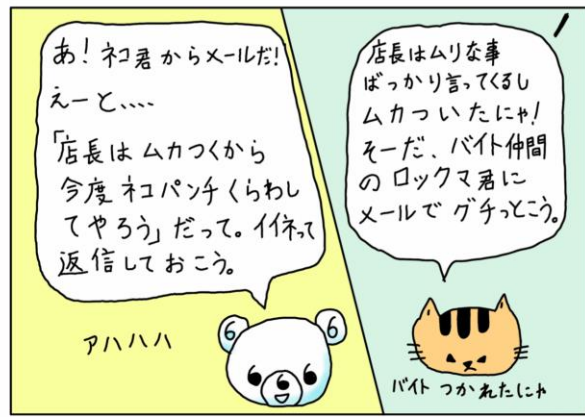 店長はムリな事
ばっかり言ってくるし
ムカついたにゃ!
そーだ、バイト仲間
のロックマ君に
メールでグチっとこう。
バイト つかれたにゃ
あ!ネコ君からメールだ!
えーと、...
「店長はムカつくから
今度ネコパンチくらわし
てやろう」だって。イイネって
返信しておこう。
アハハハ
6 6
6